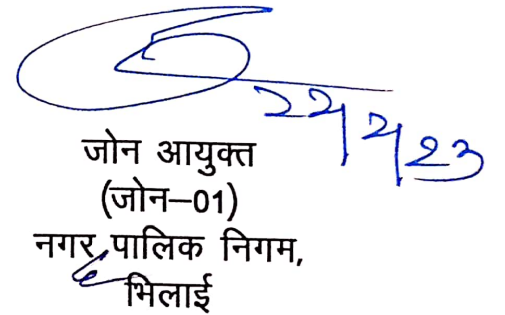 जोन आयुक्त
(जोन–01)
नगर पालिक निगम,
भिलाई